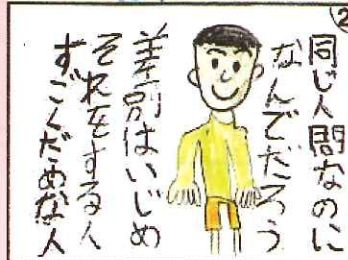 ②
同じ人間なのに
なんでだろう
差別はいじめ
それをする人
すごくだめな人